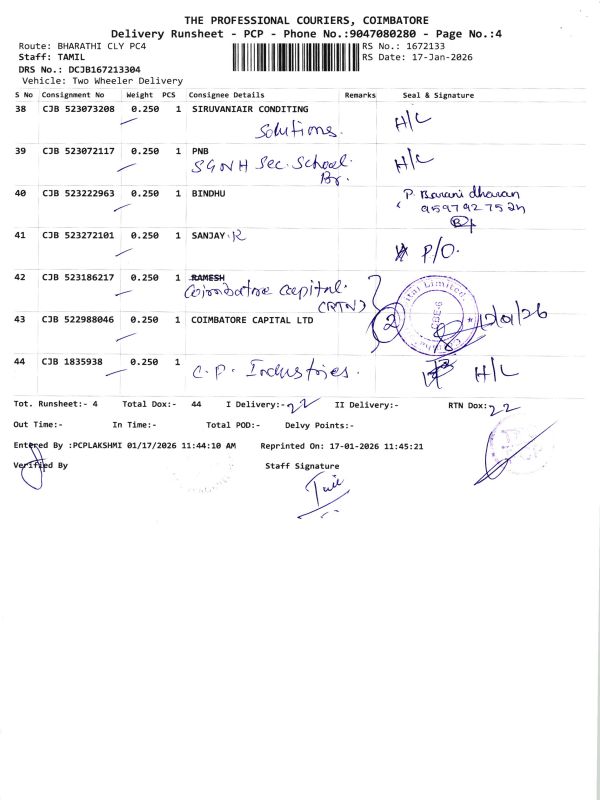 THE PROFESSIONAL COURIERS, COIMBATORE
Delivery Runsheet - PCP - Phone No.:9047080280 - Page No.:4
Route: BHARATHI CLY PC4 RS No.: 1672133
Staff: TAMIL RS Date: 17-Jan-2026
DRS No.: DCJB167213304
Vehicle: Two Wheeler Delivery
S No Consignment No Weight PCS Consignee Details Remarks Seal & Signature
38 CJB 523073208 0.250 1 SIRUVANIAIR CONDITING H/L
Solutions.
39 CJB 523072117 0.250 1 PNB H/L
SGNH Sec. School.
Br.
40 CJB 523222963 0.250 1 BINDHU P. Barani dharan
41 CJB 523272101 0.250 1 SANJAY.R P/O.
42 CJB 523186217 0.250 1 RAMESH
Coimbatore Capital.
(RTN)
43 CJB 522988046 0.250 1 COIMBATORE CAPITAL LTD 2 CBE-6
44 CJB 1835938 0.250 1 C.P. Industries. H/L
Tot. Runsheet:- 4 Total Dox:- 44 I Delivery:- 22 II Delivery:- RTN Dox: 22
Out Time:- In Time:- Total POD:- Delvy Points:-
Entered By :PCPLAKSHMI 01/17/2026 11:44:10 AM Reprinted On: 17-01-2026 11:45:21
Verified By Staff Signature